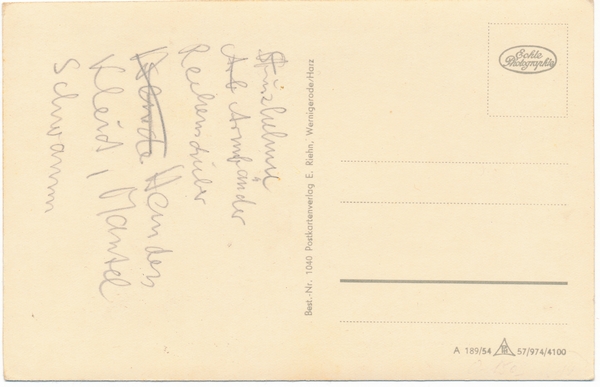 Armbänder
Rechenschieber
Hemden
Kleid, Mantel
Schwamm
Best.-Nr. 1040 Postkartenverlag E. Riehn, Wernigerode/Harz
Echte
Photographie
A 189/54 57/974/4100